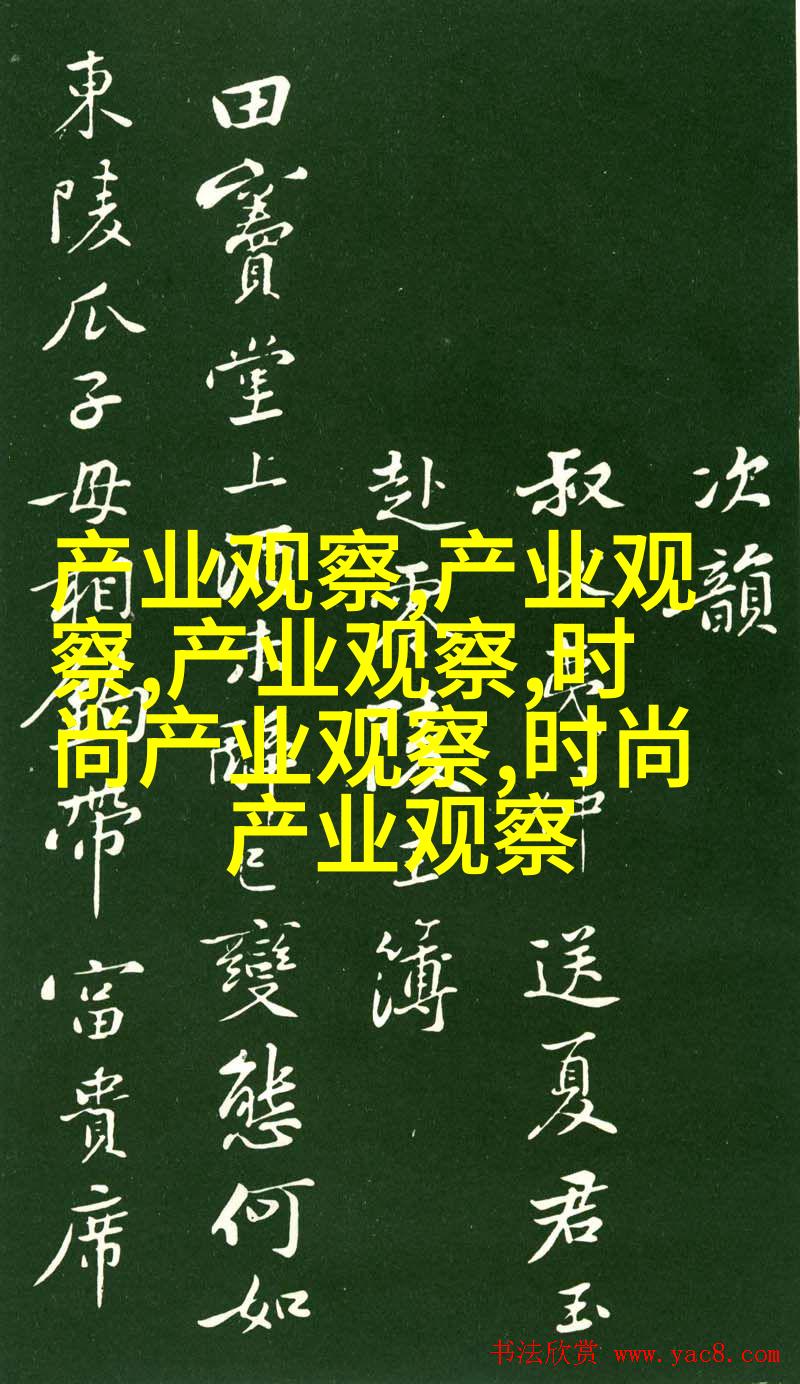 次韻
叔父夷仲送夏君玉
赴零陵主簿
田竇堂上酒未已變態何如
東陵瓜子母相鉤帶富貴席
产业观察,产业观
察,产业观察,时
尚产业观察,时尚
产业观察
书法欣赏 www.yac8.com